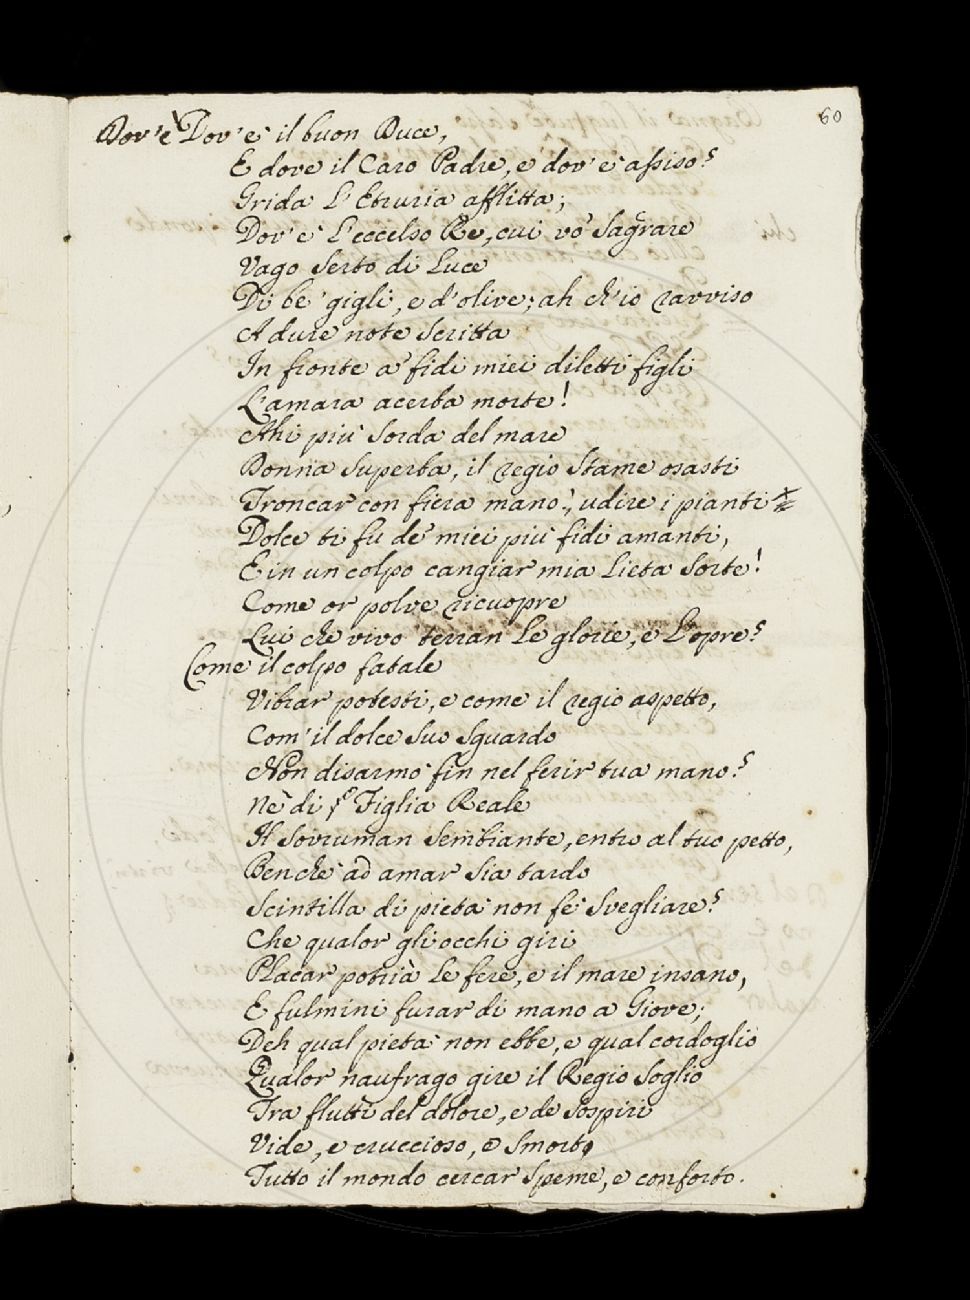 60
Dov'è Dov'è il buon Duce,
E dove il Caro Padre, e dov'è assiso?
Grida L'Etruria afflitta;
Dov'è L'eccelso Re, cui vò Sagrare
Vago Serto di Luce
Di be' gigli, e d'olive; ah ch'io ravviso
A dure note Scritta
In fronte a' fidi miei diletti figli
L'amara acerba morte!
Ahi più Sorda del mare
Donna Superba, il regio Stame osasti
Troncar con fiera mano!, udire i pianti
Dolce ti fu de' miei più fidi amanti,
E in un colpo cangiar mia Lieta Sorte!
Come or polve ricuopre
Lui che vivo terran Le glorie, e L'opre?
Come il colpo fatale
Vibrar potesti, e come il regio aspetto,
Com'il dolce Suo Sguardo
Non disarmò fin nel ferir tua mano?
Nè di Figlia Reale
Il Sovruman Sembiante, entro al tuo petto,
Benchè ad amar Sia tardo
Scintilla di pietà non fè Svegliare?
Che qualor gli occhi giri
Placar potrìa Le fere, e il mare insano,
E fulmini furar di mano a Giove;
Deh qual pietà non ebbe, e qual cordoglio
Qualor naufrago gire il Regio Soglio
Tra flutti del dolore, e de Sospiri
Vide, e cruccioso, e Smorto
Tutto il mondo cercar Speme, e conforto.